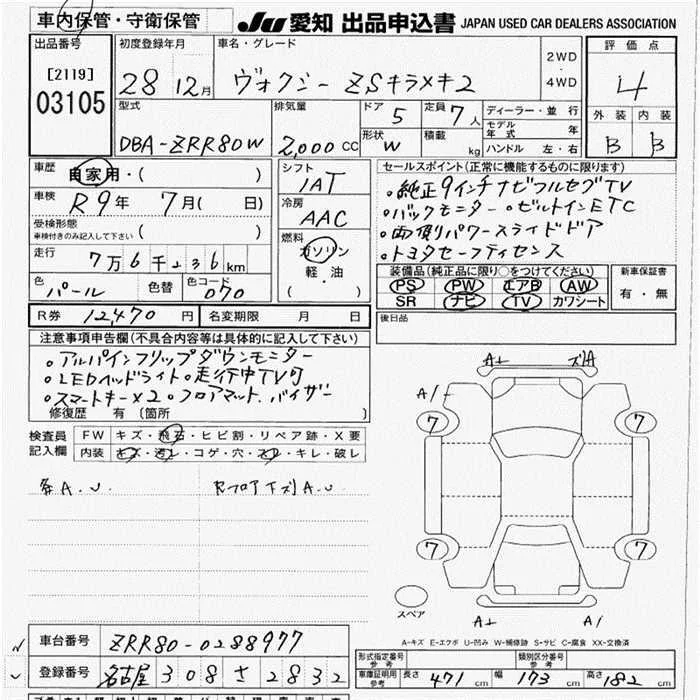 車内保管・守衛保管 JU 愛知 出品申込書 JAPAN USED CAR DEALERS ASSOCIATION
出品番号 初度登録年月 車名・グレード 評価点
[2119] 28 12月 ヴォクシー ZSキラメキ2 2WD 4WD 4
03105
型式 排気量 ドア 定員 ディーラー・並行 外装 内装
DBA-ZRR80W 2,000 CC 5 7人 モデル年式 年 B B
形状 W 積載 kg ハンドル 左・右
車歴 自家用・( ) シフト セールスポイント(正常に機能するものに限ります)
車検 R9年 7月( 日) IAT 。純正9インチナビフルセグTV
受検形態 冷房 。バックモニター 。ビルトインETC
車検付きのみ記入して下さい ( ) AAC 。両側パワースライドドア
走行 燃料 。トヨタセーフティセンス
7万6千236km ガソリン 装備品(純正品に限り○をつけてください) 新車保証書
色 色替 色コード 軽・油 PS PW エアB AW 有・無
パール 070 ( ) SR ナビ TV カワシート
R券 12,470円 名変期限 月 日 後日品
注意事項申告欄(不具合内容等は具体的に記入して下さい)
。アルパインフリップダウンモニター A+ ズA
。LEDヘッドライト。走行中TV可
。スマートキー×2 。フロアマット、バイザー A/
修復歴 有 〔箇所 7 7
検査員 FW キズ・飛石・ヒビ割・リペア跡・X要
記入欄 内装 キズ・汚レ・コゲ・穴・スレ・キレ・破レ
A.U Rフロア下 A.U
7 7
スペア A+ A/
A-キズ E-エクボ U-凹み W-補修跡 S-サビ C-腐食 XX-交換済
車台番号 ZRR80-0288977 型式指定番号 参考 類別区分番号 参考
登録番号 名古屋 308 さ 2832 車庫証明用 参考 長さ 471cm 幅 173cm 高さ 182cm